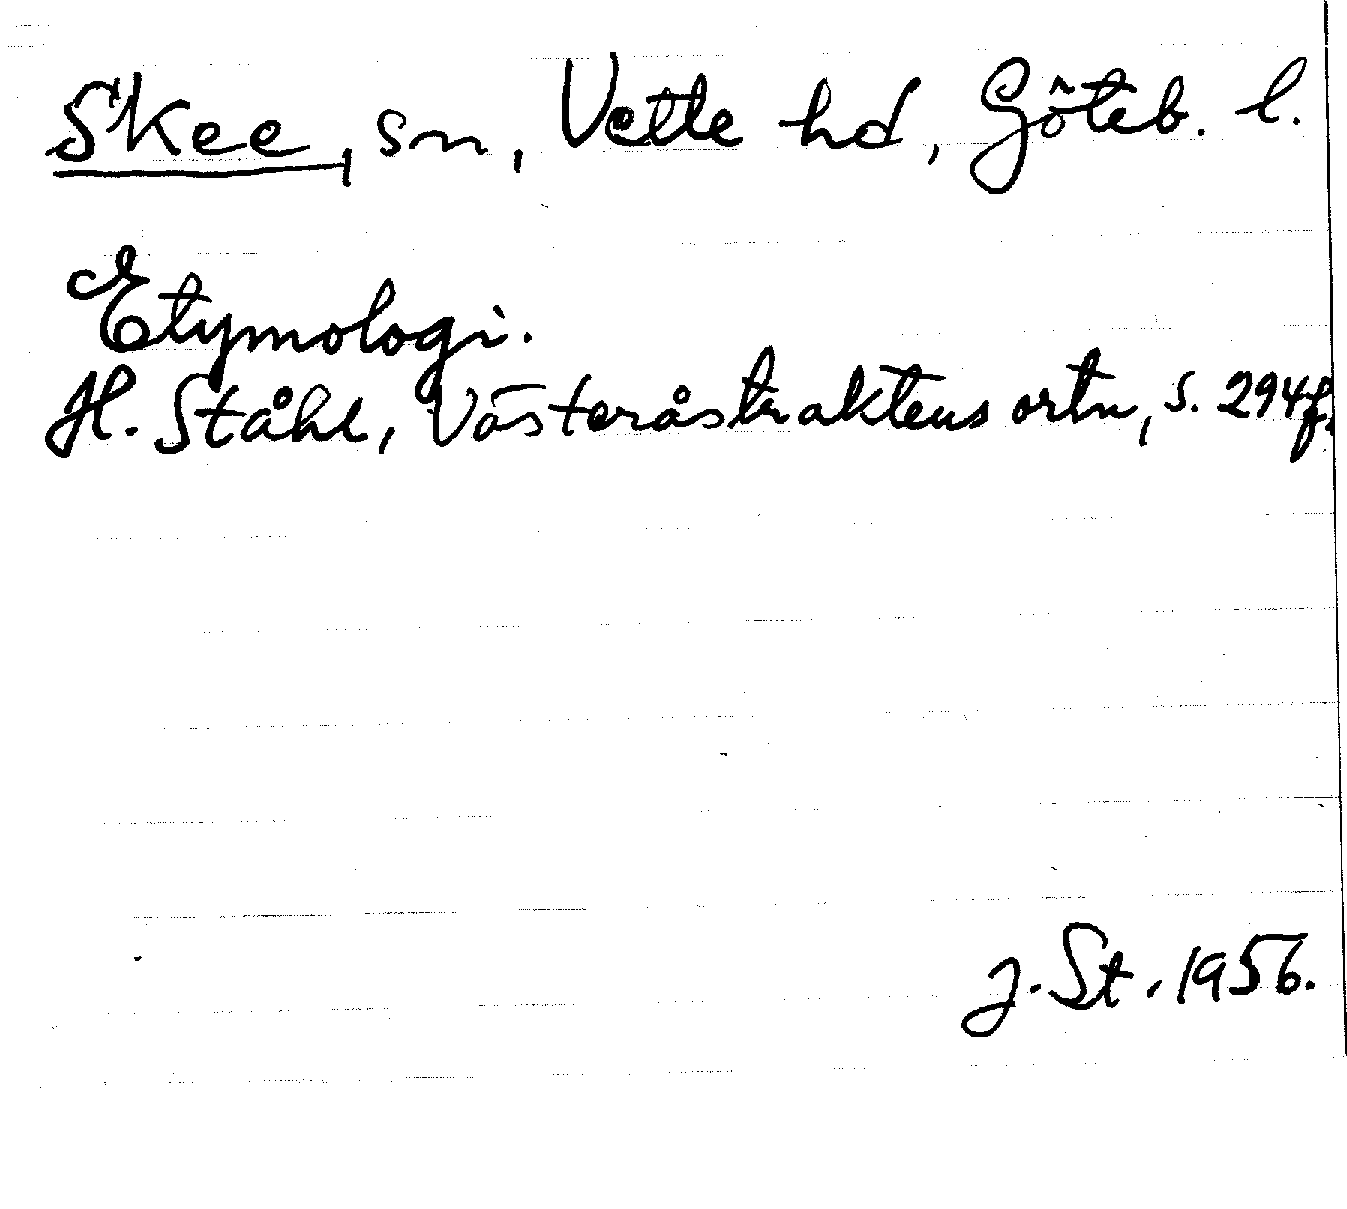 Skee, sn, Vette hd, Göteb. l.
Etymologi.
H. Ståhl, Västeråstraktens ortn, s. 294f.
J. St. 1956.